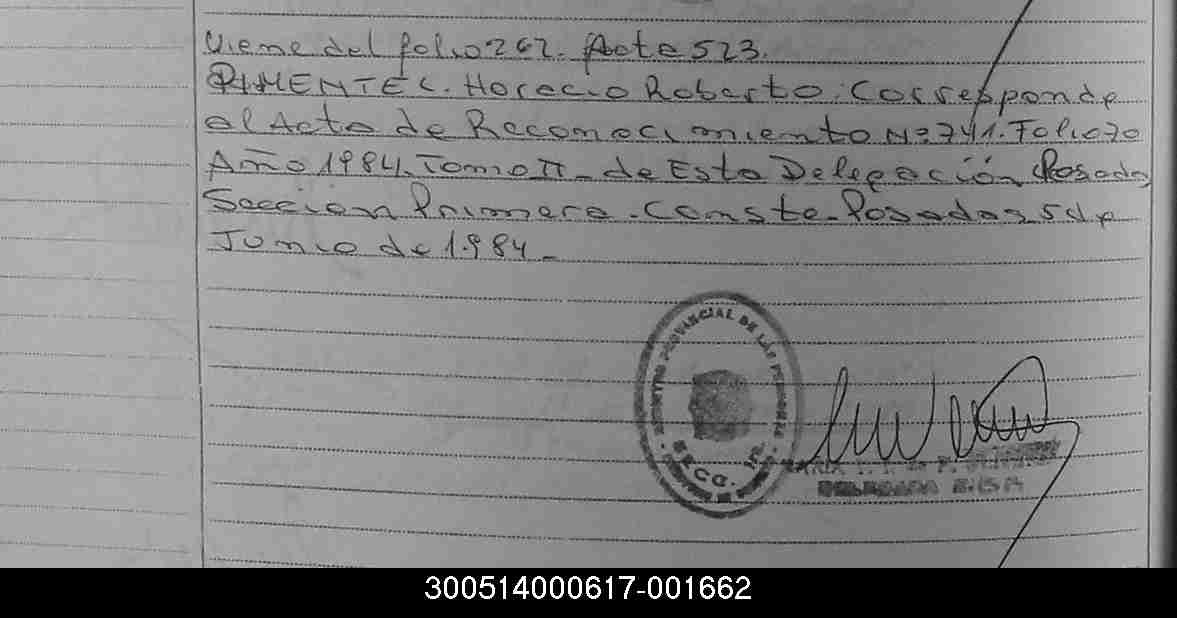 Viene del folio 262. Acta 523.
PIMENTEL. Horacio Roberto. Corresponde
al Acta de Reconocimiento Nº 741. Folio 70
Año 1984. Tomo II - de Esta Delegación Posadas
Sección Primera. Conste. Posadas 5 de
Junio de 1984 -
REGISTRO PROVINCIAL DE LAS PERSONAS
SECC. 1ª
DELEGADA
300514000617-001662